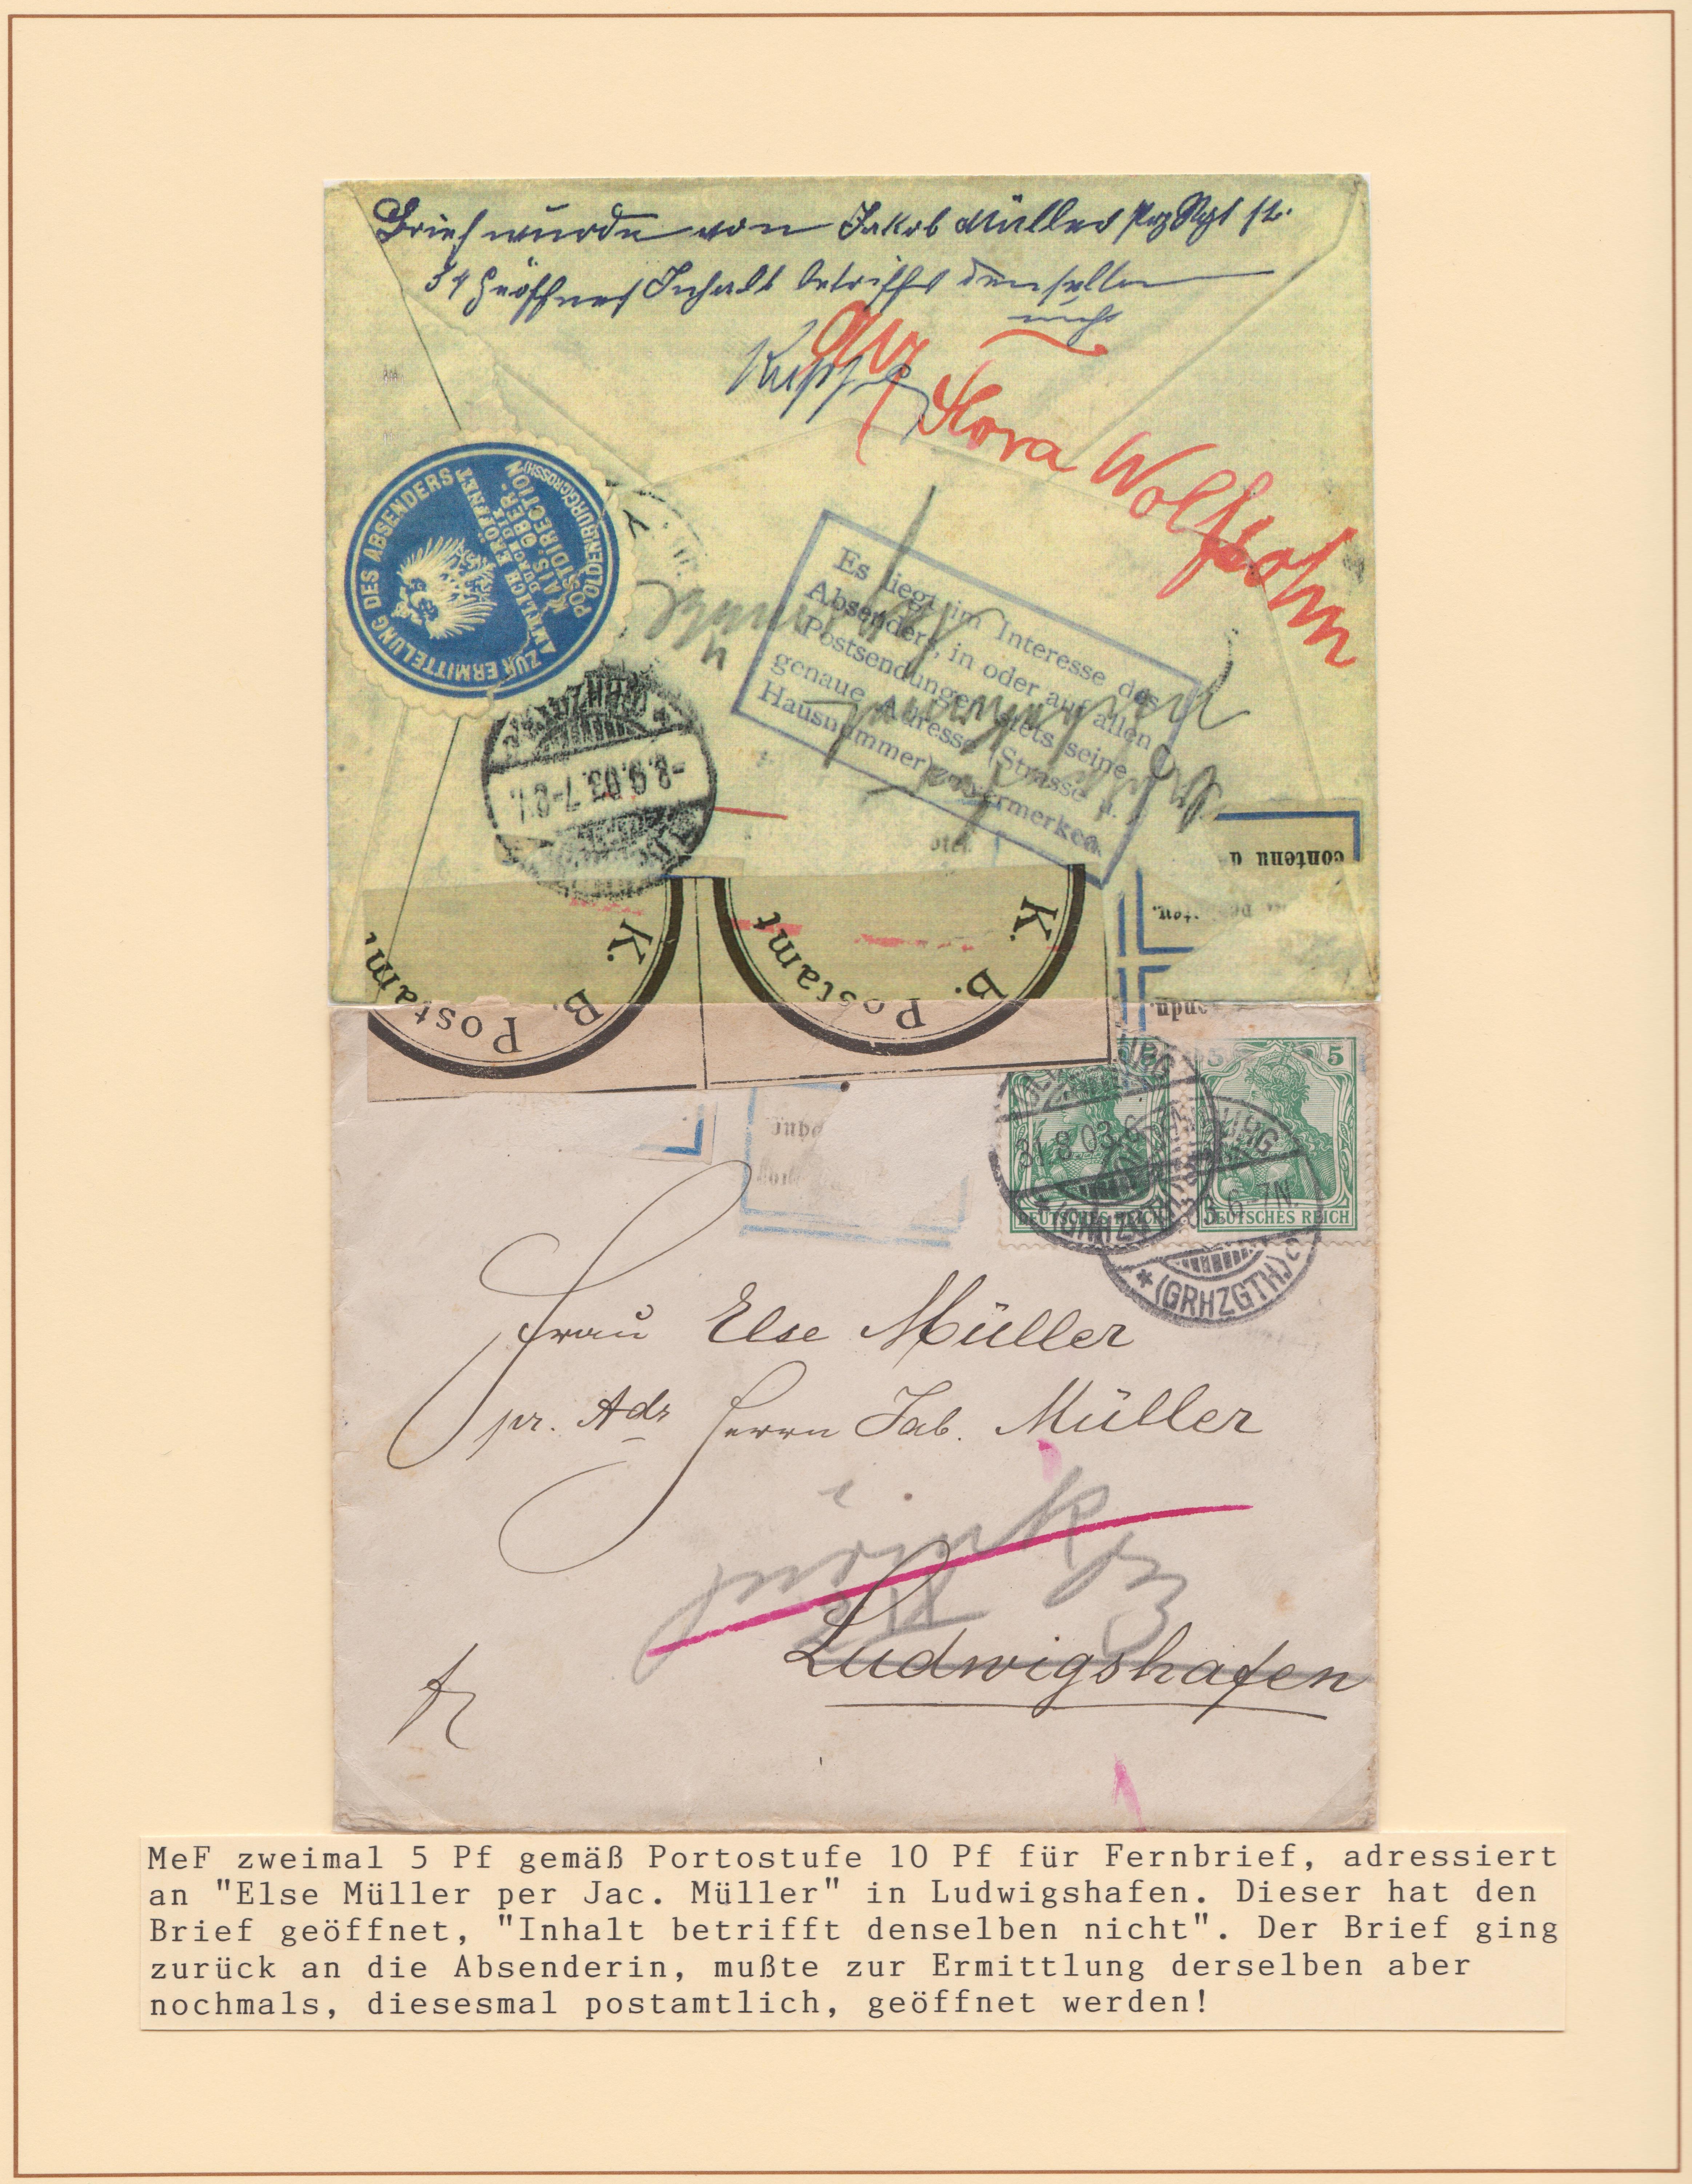 Brief wurde von Jakob Müller
geöffnet Inhalt betrifft denselben
nicht
an
Flora Wolfsohn
ZUR ERMITTELUNG DES ABSENDERS
AMTLICH ERÖFFNET
DURCH DIE
KAIS. OBER-
POSTDIRECTION
OLDENBURG (GROSSH)
Es liegt im Interesse des
Absenders, in oder auf allen
Postsendungen stets seine
genaue Adresse (Strasse u.
Hausnummer) zu vermerken.
-8.9.03.7-8V.
contenu d
K. B. Postamt
K. B. Postamt
5
DEUTSCHES REICH
DEUTSCHES REICH
31.8.03.6-7N
(GRHZGTH)
6-7N.
*(GRHZGTH)
Frau Else Müller
pr. Adr Herrn Jab. Müller
zurück
2 IX
Ludwigshafen
MeF zweimal 5 Pf gemäß Portostufe 10 Pf für Fernbrief, adressiert
an "Else Müller per Jac. Müller" in Ludwigshafen. Dieser hat den
Brief geöffnet, "Inhalt betrifft denselben nicht". Der Brief ging
zurück an die Absenderin, mußte zur Ermittlung derselben aber
nochmals, diesesmal postamtlich, geöffnet werden!